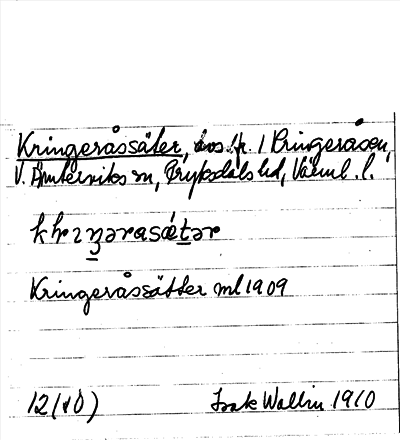 Kringeråssäter, bos. fr. / Kringeråsen,
V. Ämterviks sn, Fryksdals hd, Värml. l.
Kringeråssätter ml 1909
12 (10) Isak Wallin 1910